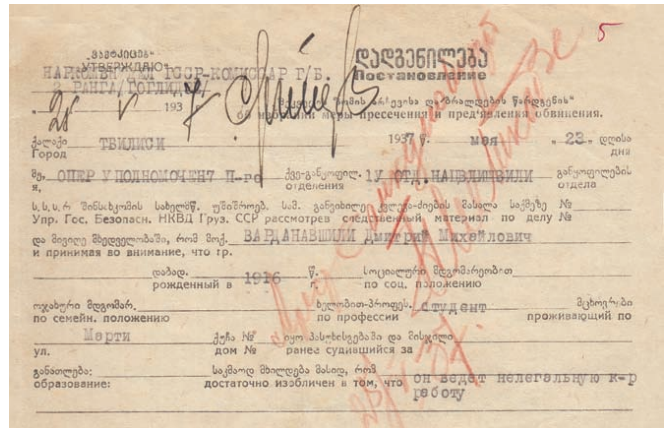 „ვამტკიცებ“
„УТВЕРЖДАЮ“
НАРКОМВНУДЕЛ ГССР-КОМИССАР Г/Б.
2 РАНГА/ГОГЛИДЗЕ/
5
დადგენილება
Постановление
25 V 1937
об избрании меры пресечения и предъявления обвинения.
ქალაქი ТБИЛИСИ 1937 წ. мая „23“ დღისა
Город г. дня
მე, ОПЕРУПОЛНОМОЧЕНТ П-го ქვე-განყოფილ. 1У ОТД. НАЦВЛИШВИЛИ განყოფილების
я, отделения отдела
Упр. Гос. Безопасн. НКВД Груз. ССР рассмотрев следственный материал по делу №
და მივიღე მხედველობაში, რომ მოქ. ВАРДАНАШВИЛИ Дмитрий Михайлович
и принимая во внимание, что гр.
დაბად. 1916 წ. სოციალური მდგომარეობით
рожденный в г. по соц. положению
ოჯახური მდგომარ. ხელობით-პროფეს. студент მცხოვრები
по семейн. положению по профессии проживающий по
Марти ქუჩა № იყო პასუხისგებაში და მისჯილი
ул. дом № ранее судившийся за
განათლება: საკმაოდ მხილდება მასიდ, რომ он ведет нелегальную к-р
образование: достаточно изобличен в том, что работу